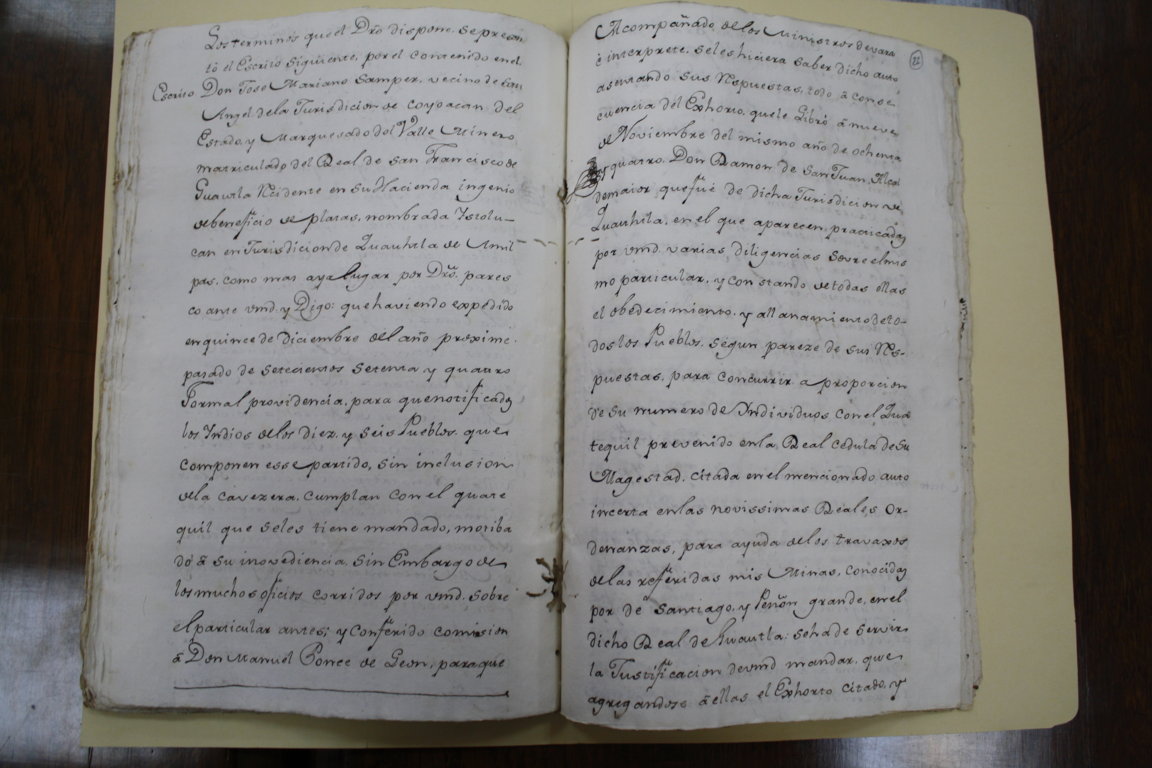 Los terminos que el Dro dispone, se presen
tó el Escrito siguiente, por el contenido en el.
Escrito
Don Jose Mariano Samper, vecino de San
Angel de la Jurisdicion de Coyoacan, del
Estado, y Marquesado del Valle Minero
matriculado del Real de San Francisco de
Guavtla Recidente en su Hacienda ingenio
de beneficio de platas, nombrada Ystolu-
can en Jurisdicion de Quauhtla de Amil
pas, como mas aya lugar por Dro. pares
co ante vmd. y Digo: que haviendo expedido
en quince de Diciembre del año proximo
pasado de setecientos setenta, y quatro
Formal providencia, para que notificados
los Yndios de los diez, y seis Pueblos, que
componen esse partido, sin inclusion
de la cavezera, cumplan con el quate
quil que seles tiene mandado, motiba
do â su inovediencia, sin Embargo de
los muchos oficios corridos por vmd. sobre
el particular antes; y conferido comision
â Don Manuel Ponce de Leon, para que
22
Acompañado de los Ministros de vara
è interprete, seles hiciera saber dicho auto,
asentando sus Respuestas, todo â conse-
cuencia del Exhorto, que le Libró â nueve
de Noviembre del mismo año de ochenta
y quatro, Don Ramon de San Juan, Alcal
de maior, que fué de dicha Jurisdicion de
Quauhtla, en el que aparecen practicadas
por vmd. varias diligencias sovre el mis
mo particular, y constando de todas ellas
el obedecimiento, y allanamiento de to-
dos los Pueblos, segun pareze de sus Res-
puestas, para concurrir â proporcion
de su numero de Yndividuos con el Qua
tequil prevenido en la Real cedula de Su
Magestad, citada en el mencionado auto
incerta en las novissimas Reales Or-
denanzas, para ayuda de los travaxos
de las referidas mis Minas, conocidas
por de Santiago, y Peñon grande, en el
dicho Real de Huautla: se ha de servir
la Justificacion de vmd mandar, que
agregandose â ellas el Exhorto citado, y